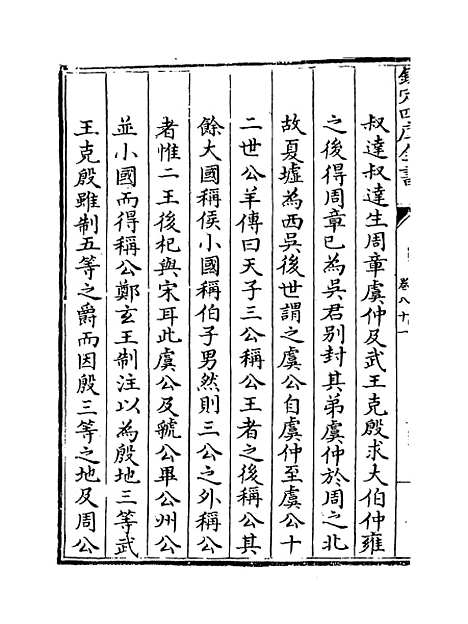 欽定四庫全書
卷八十一
叔達叔達生周章虞仲及武王克殷求大伯仲雍
之後得周章已為吳君别封其弟虞仲於周之北
故夏墟為西吳後世謂之虞公自虞仲至虞公十
二世公羊傳曰天子三公稱公王者之後稱公其
餘大國稱侯小國稱伯子男然則三公之外稱公
者惟二王後杞與宋耳此虞公及虢公畢公州公
並小國而得稱公鄭玄王制注以為殷地三等武
王克殷雖制五等之爵而因殷三等之地及周公